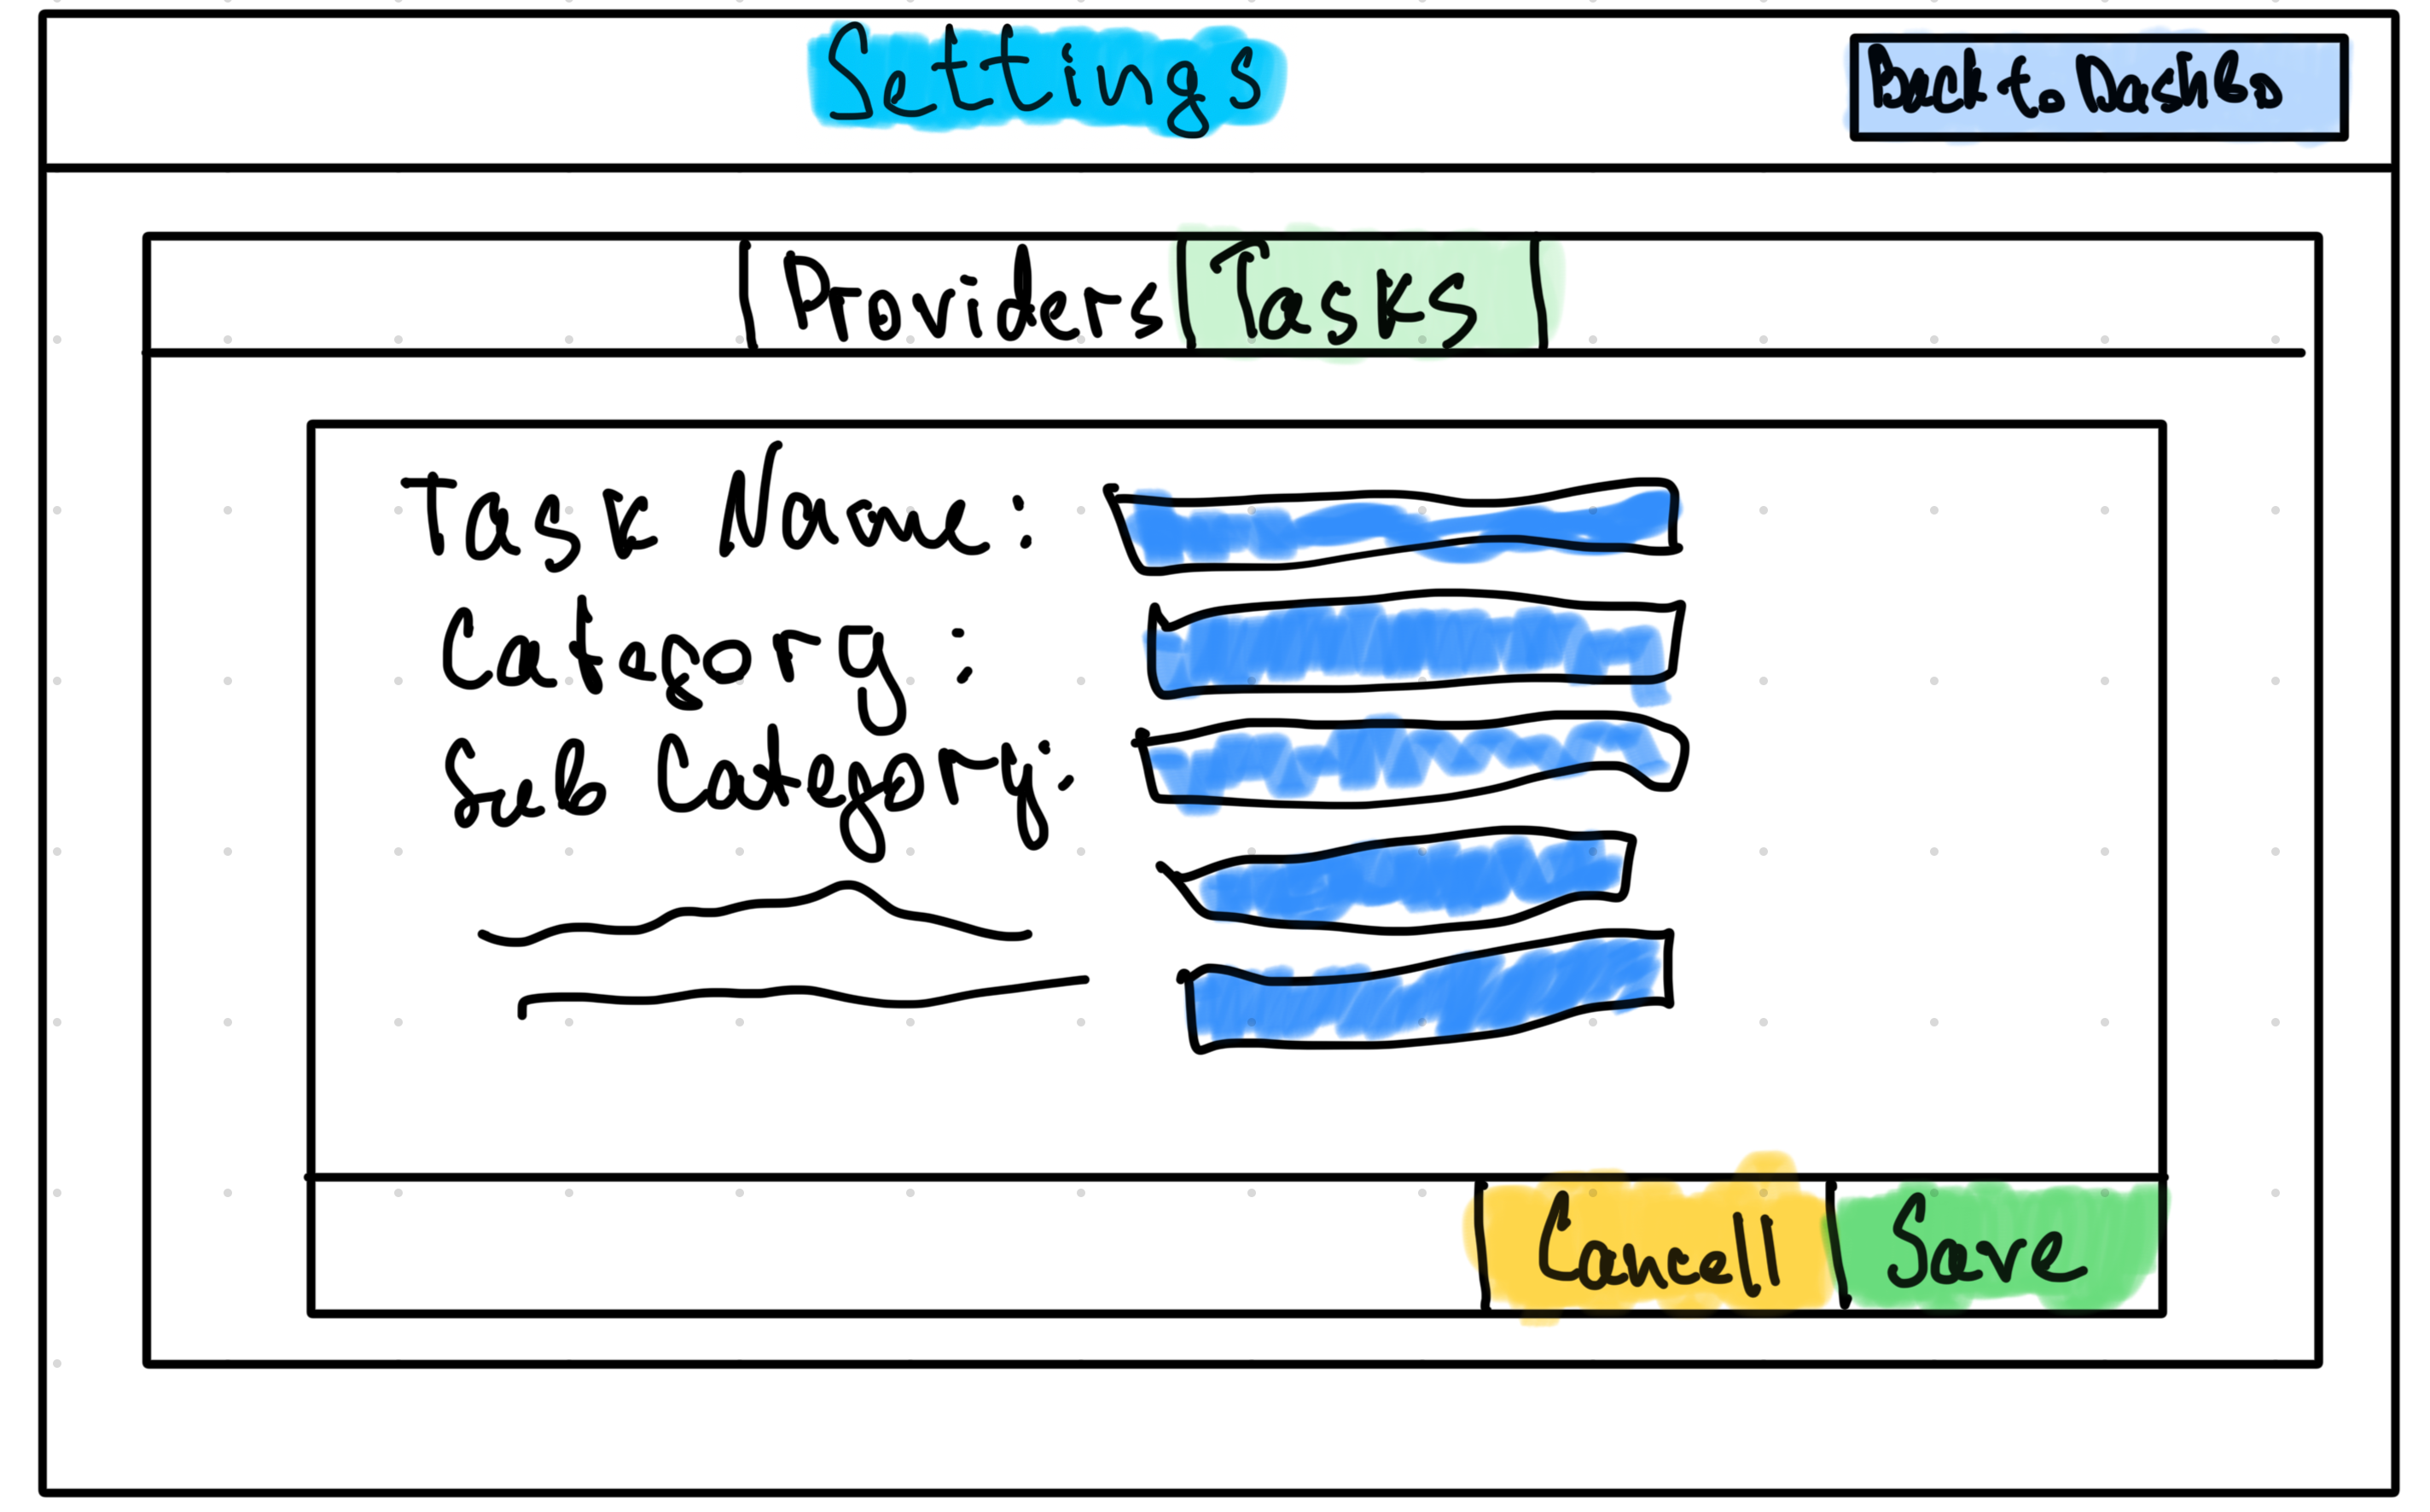 Settings
Back to DashBo
Providers
Tasks
Task Name:
Category:
Sub Category:
Cancell
Save